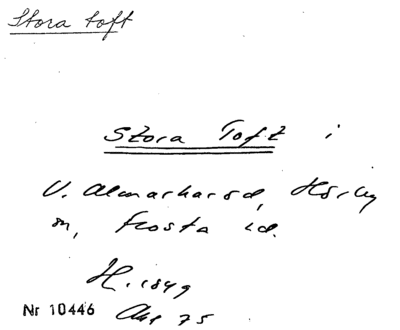 Stora toft
Stora Toft i
V. Almarharad, Hörby
sn, Frosta hd.
H. 1849
Nr 10446 Akt 75